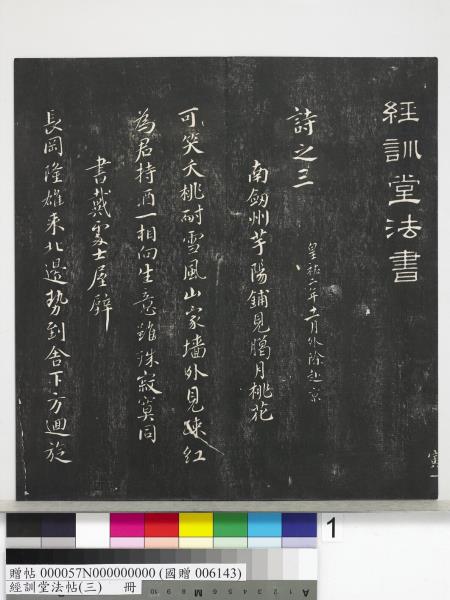 經訓堂法書
詩之三
皇祐二年十一月外除赴京
南劒州芋陽鋪見臘月桃花
可笑夭桃耐雪風山家墻外見疎紅
為君持酒一相向生意雖殊寂寞同
書戴處士屋壁
長岡隆雄來北邊勢到舍下方迴旋
寅一
1
贈帖 000057N000000000 (國贈 006143)
經訓堂法帖(三) 冊